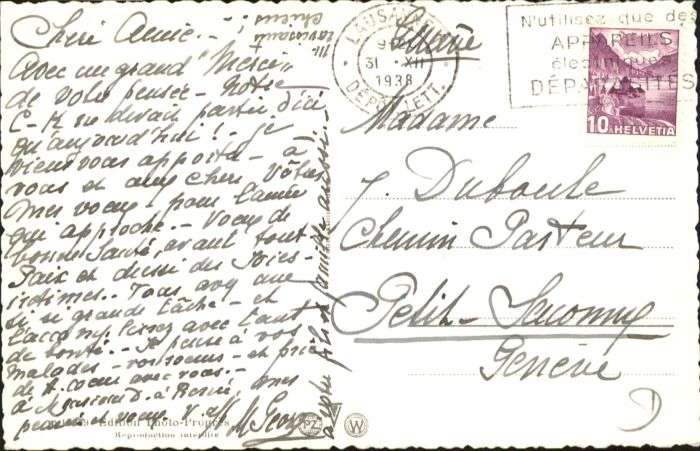 Chère Amie. -
Avec un grand "Merci"
de votre pensée - Notre
C - M ne devait partir d'ici
qu'aujourd'hui! - je
viens vous apporter - à
vous et aux chers Vôtres
mes voeux - pour l'année
qui approche. - Voeux de
bonne Santé, avant tout -
Paix et aussi des Joies -
intimes. - Vous avez une
si grande tâche - et
l'accomplissez avec tant
de bonté. - Je pense à vos
malades - vos soeurs - et prie
de t. coeur avec vous. -
à Monsieur D. à mes
pensées et voeux.
LAUSANNE
31. XII
1938
DÉP. LETT.
N'utilisez que des
APPAREILS
électriques
DÉPARASITÉS
10 HELVETIA
Madame
J. Duboule
Chemin Pasteur
Petit-Saconnex
Genève
Edition Photo-Progrès
Reproduction interdite
PZ
W